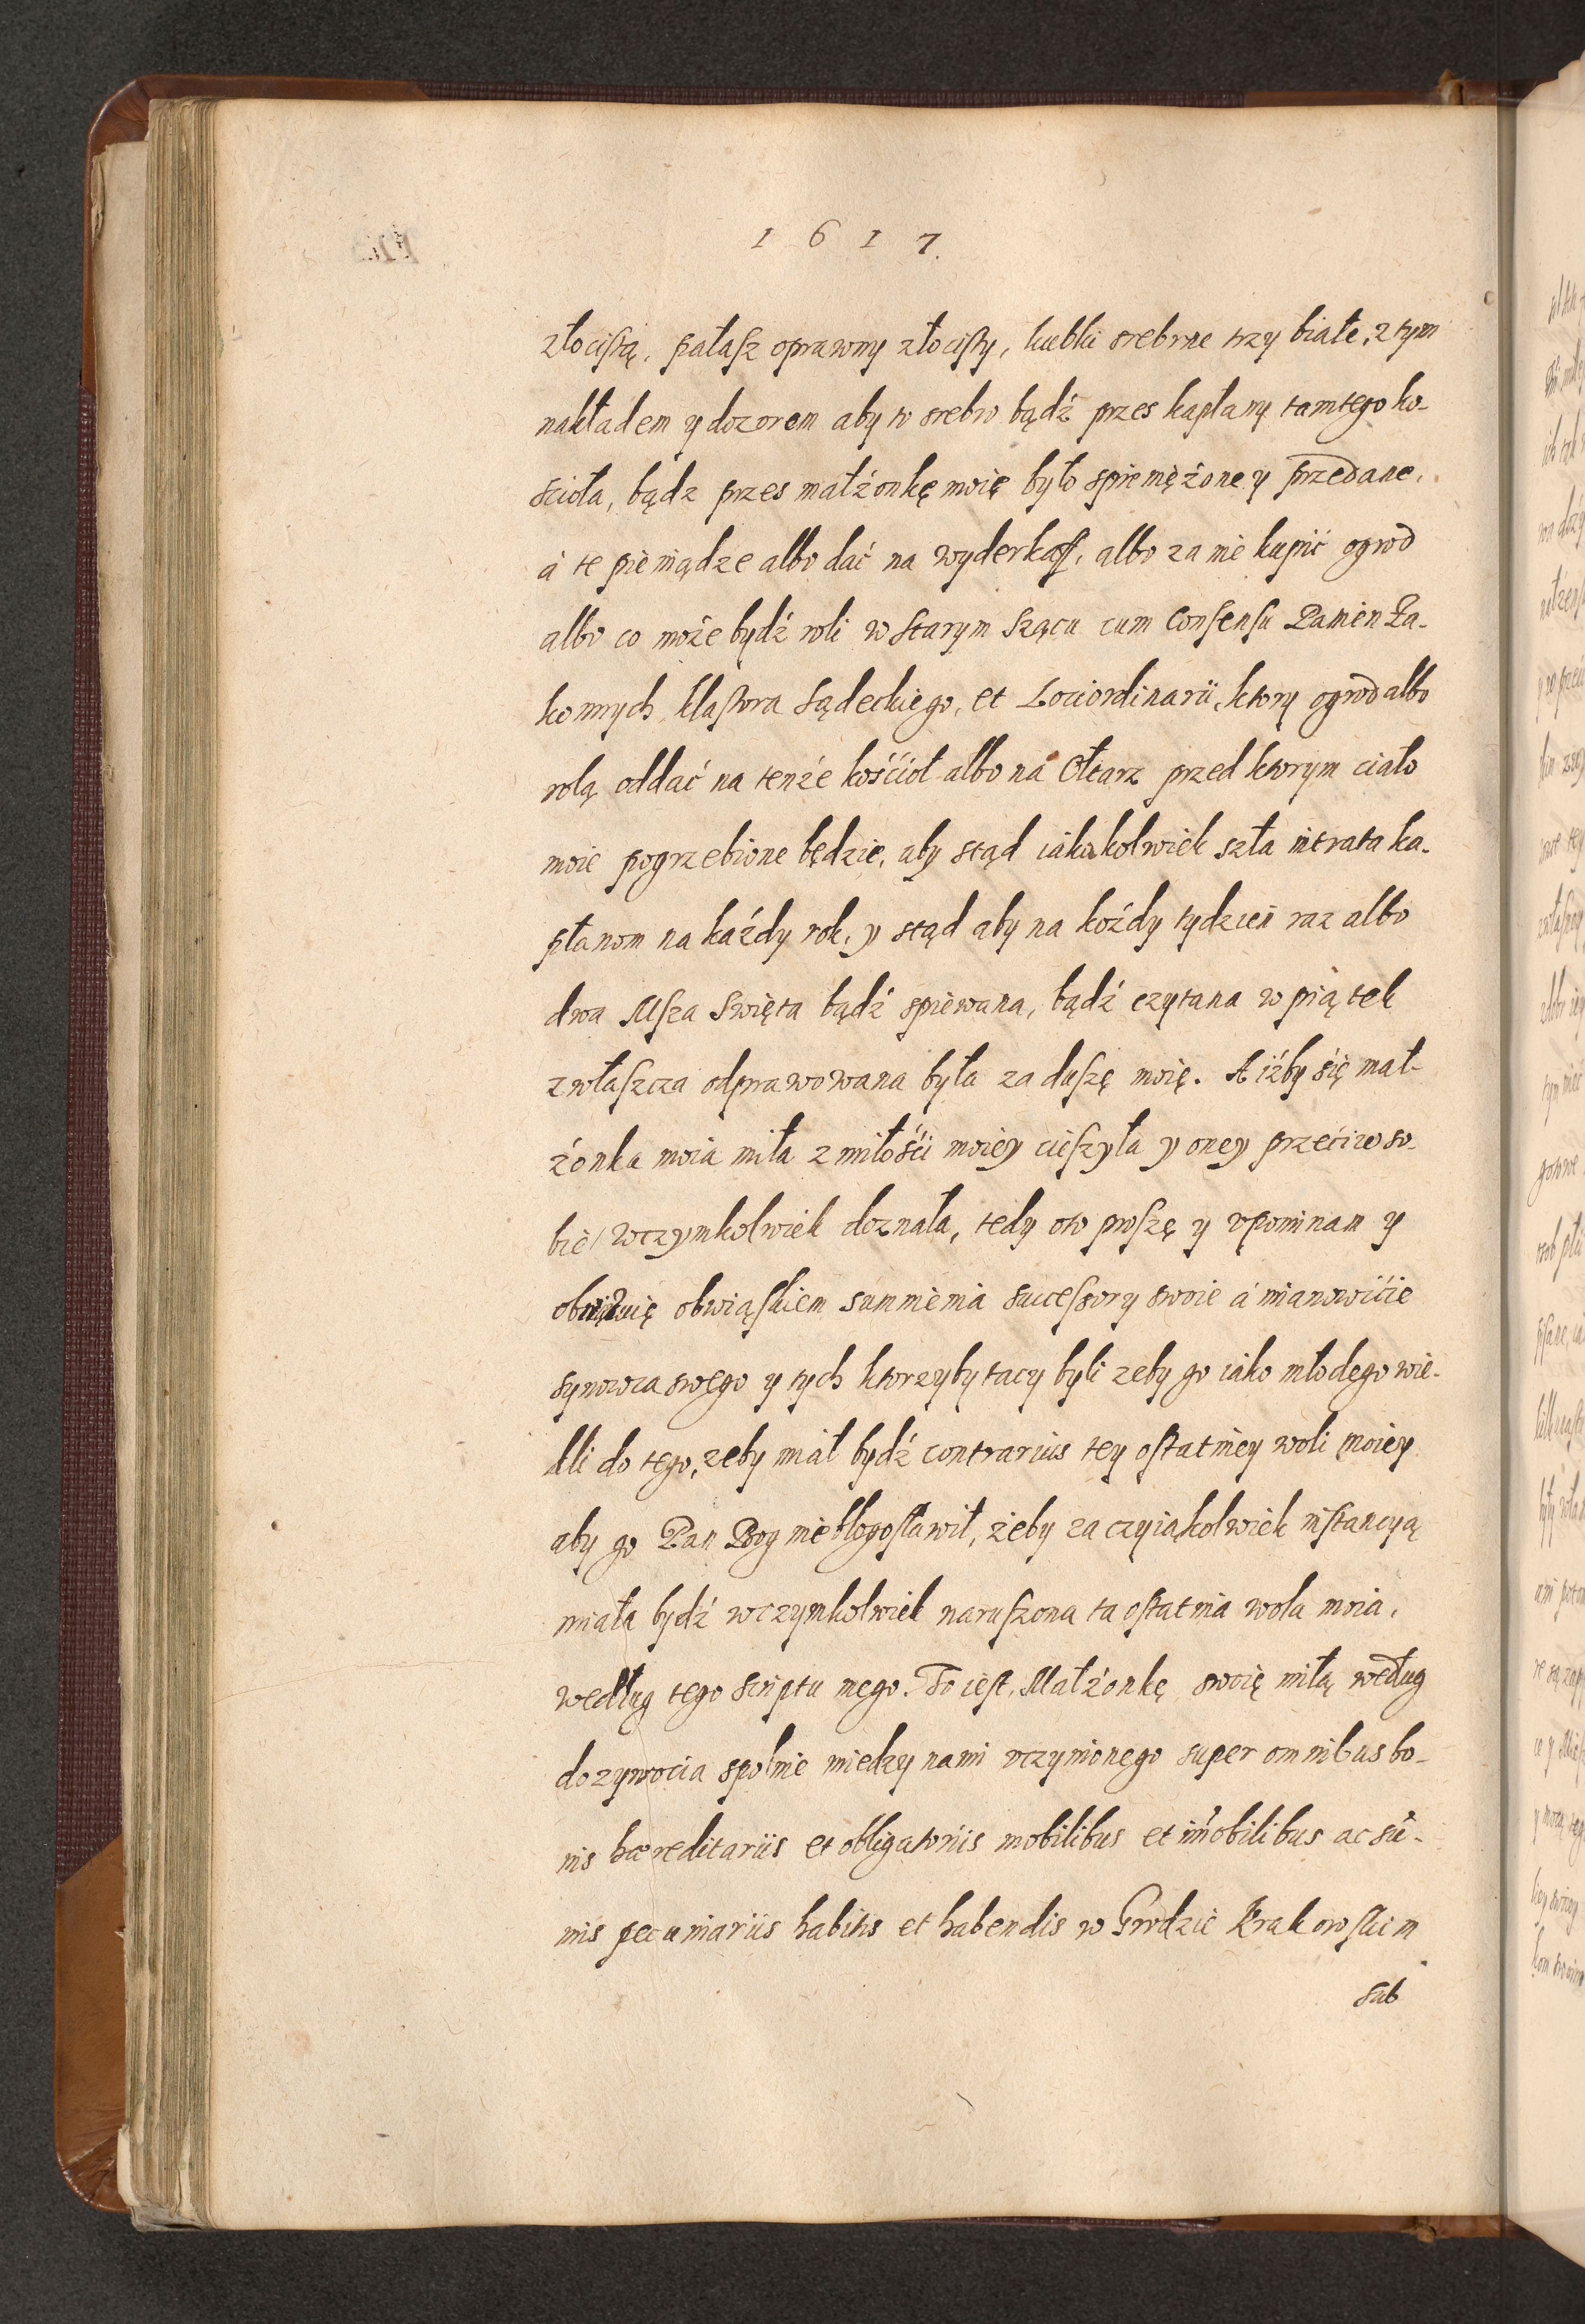 1617
złocistą, pałasz oprawny złocisty, kubki srebrne trzy białe, z tym
nakładem y dozorem aby to srebro bądź przes kapłany tamtego ko-
scioła, bądz przes małżonkę moię było spieniężone y przedane,
á te pieniądze albo dać na wyderkaff, albo za nie kupić ogrod
albo co może bydź roli w starym Sządcu cum Consensu Panien Za-
konnych klasztora Sądeckiego, et Lociordinarii, ktory ogrod albo
rolą oddać na tenże kośćioł albo na Ołtarz przed ktorym ciało
moie pogrzebione będzie, aby stąd iakakolwiek szła intrata ka-
płanom na każdy rok, y stąd aby na kożdy tydzień raz albo
dwa Msza Swięta bądź spiewana, bądź czytana w piątek
zwłaszcza odprawowana była za duszę moię. A iżby się mał-
żonka moia miła z miłośći moiey cieszyła y oney przećiw so-
bie, wczymkolwiek doznała, tedy oto proszę y vpominam y
obwięzuię obwiąskiem sumnienia successory swoie á mianowićie
synowca swego y tych ktorzyby tacy byli zeby go iako młodego wie-
dli do tego, zeby miał bydź contrarius tey ostatniey woli moiey
aby go Pan Bog niebłogosławił, żeby za czyiąkolwiek instancyą
miała bydź wczymkolwiek naruszona ta ostatnia wola moia,
według tego scriptu mego. To iest, Małżonkę swoię miłą według
dozywocia spolnie miedzy nami vczynionego super omnibus bo-
nis haereditariis et obligatoriis mobilibus et im̃obilibus ac sũ-
mis pecuniariis habitis et habendis w Grodzie Krakowskim
sub